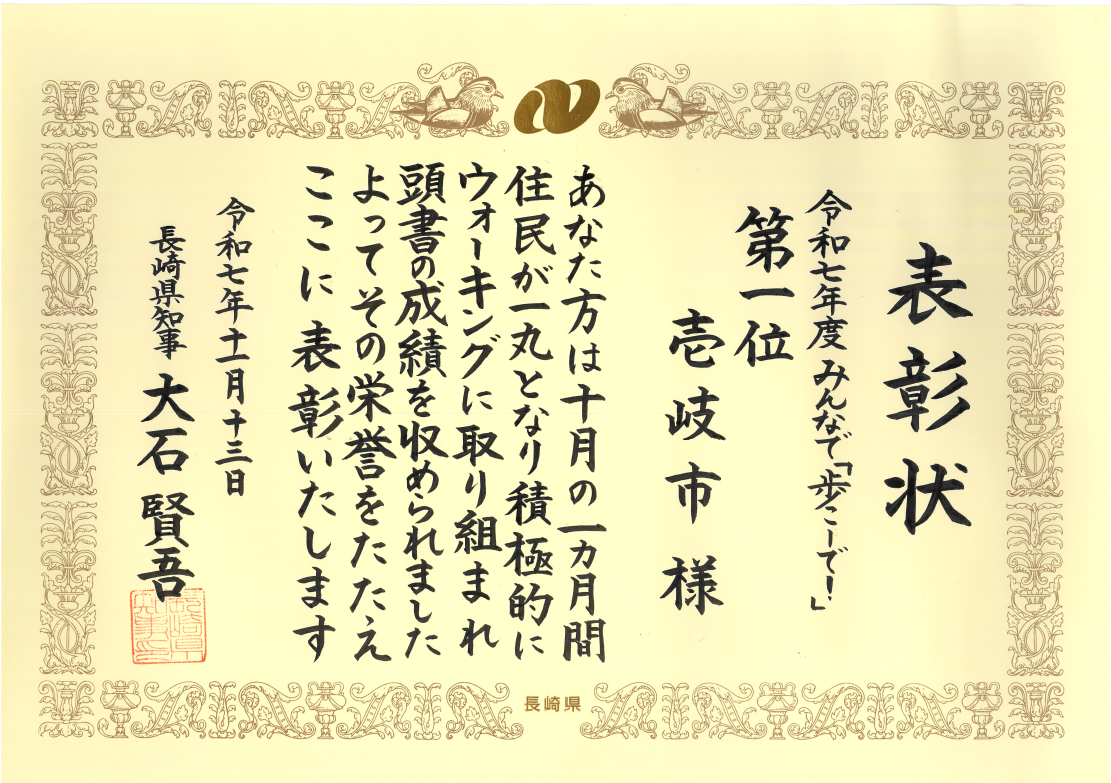 表彰状
令和七年度 みんなで「歩こーで！」
第一位
壱岐市 様
あなた方は十月の一カ月間
住民が一丸となり積極的に
ウォーキングに取り組まれ
頭書の成績を収められました
よってその栄誉をたたえ
ここに表彰いたします
令和七年十一月十三日
長崎県知事 大石賢吾
長崎県知事之印
長崎県